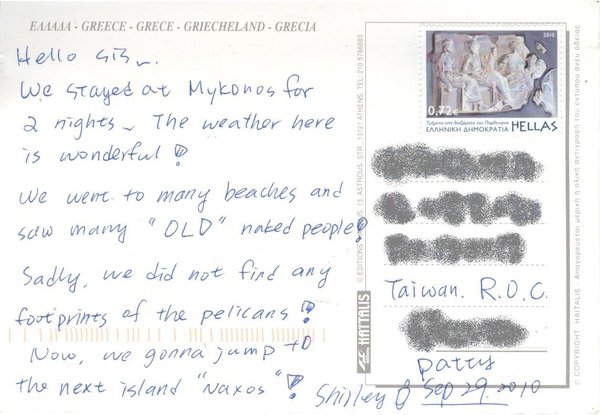 ΕΛΛΑΔΑ - GREECE - GRECE - GRIECHELAND - GRECIA
Hello sis~.
We stayed at Mykonos for
2 nights~ The weather here
is wonderful!
We went to many beaches and
saw many "OLD" naked people!
Sadly, we did not find any
footprints of the pelicans!
Now, we gonna jump to
the next island "Naxos"!
Shirley
2010
0,72€
ΕΛΛΗΝΙΚΗ ΔΗΜΟΚΡΑΤΙΑ HELLAS
Taiwan. R.O.C.
Patty
Sep 29. 2010
© EDITIONS HAITALIS, 13, ASTROUS STR., 13121 ATHENS, TEL: 210 5766883
HAITALIS
© COPYRIGHT HAITALIS - Απαγορεύεται μερική ή ολική αντιγραφή του εντύπου άνευ αδείας